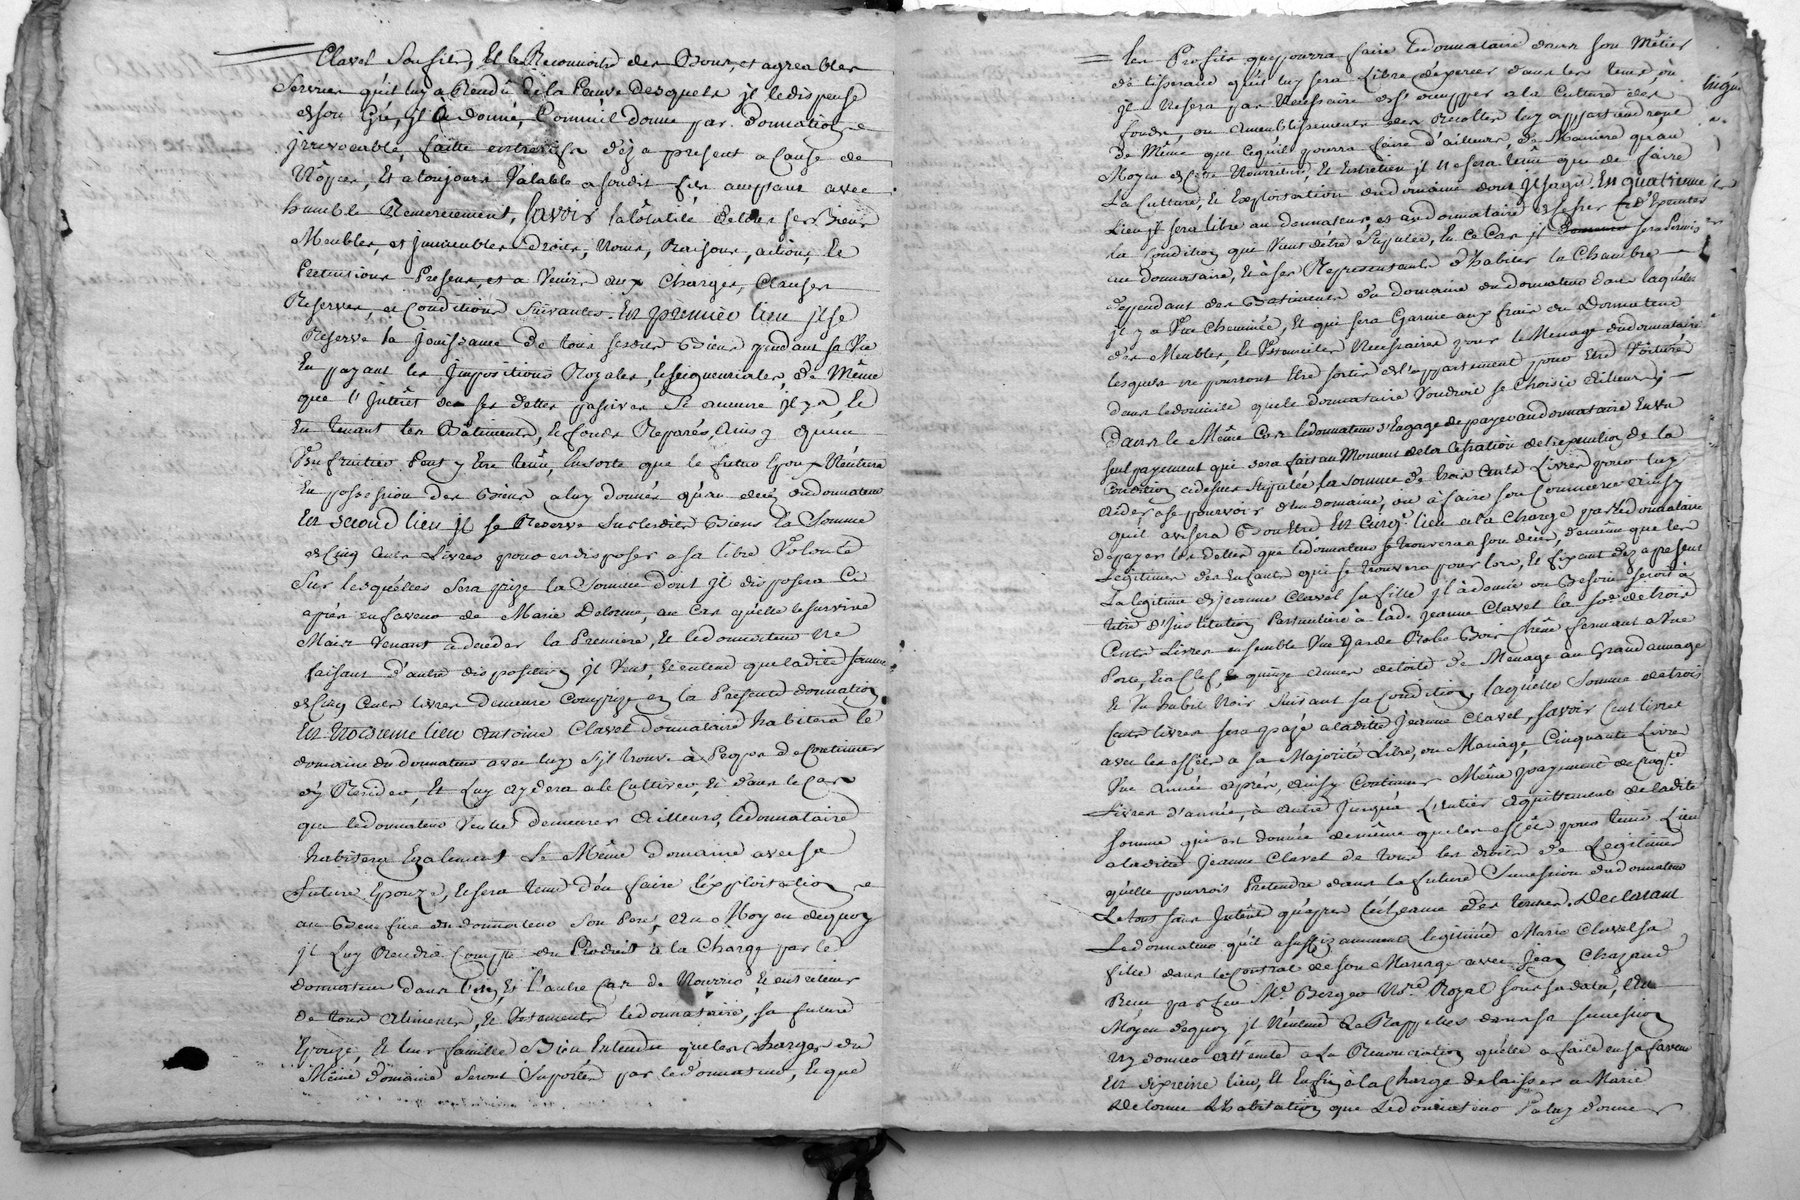 Clavel son fils, Et En Reconnoite des Bons, et agreables
Services quil luy a Rendû de la Preuve desquels jl le dispense
de son Gré, jl a donné, Comme il donne par Donnation
jrrevocable, faitte entre vifs dèz a present a Cause de
Nôpces, Et a toujours Valable a sondit fils acceptant avec
humble Remerciement, Savoir la totalité de tous ses Biens
Meubles, et jmmeubles Droits, Noms, Raisons, actions, Et
Pretensions Presens, et a Venir aux Charges, Clauses
Reserves, et Conditions Suivantes. En premier lieu jl se
Reserve la jouissance De tous sesdits Biens pendant sa Vie
En payant les jmpositions Royales, et seigneuriales, de Même
que l'jntérêt de ses dettes passives Si aucune jl y a, Et
En tenant les Bâtiments, et fonds Reparés, Ainsy quun
Usufruitier Peut y être tenû, Ensorte que le futur Epoux N'entrera
En possession des Biens a luy donnés qu'au décès du donnateur
En second lieu jl se Reserve sur lesdits Biens la Somme
de Cinq Cents Livres pour en disposer a sa libre Volonté
Sur lesquelles sera prize la Somme dont jl disposera Cy
après en faveur de Marie Delorme, au Cas quelle le survive
Mais Venant a deceder la Première, Et le donnateur Ne
faisant d'autre disposition jl Veut, Et entend que ladite somme
de Cinq Cents livres demeure Comprize en la Presente donnation
En troisieme lieu Antoine Clavel donnataire habitera le
domaine du donnateur avec luy S'jl trouve à Propos de Continuer
d'y Resider, Et Luy aydera a le Cultiver, Et dans le Cas
que le donnateur Veuille demeurer Ailleurs, le donnataire
habitera Egalement Le Même domaine avec sa
Future Epouze, et sera tenu d'en faire l'exploitation
au Benefice du donnateur Son Pere, Au Moyen dequoy
jl Luy Rendra Compte du Produit à la Charge par le
donnateur dans l'un, Et l'autre Cas de Nourrir, Et entretenir
de tous Aliments, Et Vetements le donnataire, sa future
Epouze, Et leur famille Bien Entendu que les charges du
Même Domaine seront Suportées par le donnateur, Et que
Les Profits que pourra faire le donnataire dans son Métier
de tisserand qu'il luy sera Libre d'exercer dans les tems où
jl Ne sera pas Necessaire de s'occupper a la Culture des
fonds, ou Ameublissements des Recoltes luy appartiendront
de Même que Ce qu'il pourra faire d'ailleurs, de Maniere qu'au
Moyen de Cette Nourriture, Et Entretien jl Ne sera tenû que de faire
La Culture, Et Exploitation du domaine dont jl s'agit. En quatrieme
Lieu jl sera libre au donnateur, et au donnataire de se
la Condition qui Vient d'être Stipulée, En Ce Cas jl sera Permis
au donnataire, Et à ses Representants d'habiter la Chambre
dependant des Batiments du domaine du donnateur dans laquelle
jl y a Une Cheminée, Et qui sera Garnie aux frais du Donnateur
des Meubles, Et Ustenciles Necessaires pour le Menage du donnataire
lesquels ne pourront Etre sortis de l'appartement pour Etre Voiturés
dans le domicile que le donnataire Voudroit se Choisir Ailleurs;
Dans le Même Cas le donnateur s'Engage de payer au donnataire En un
seul payement qui sera fait au Moment de la Cessation de l'execution de la
Condition cidessus stipulée la somme de trois Cents Livres pour luy
aider a se pourvoir d'un domaine, ou à faire son Commerce Ainsy
qu'il avisera Bon être En Cinq.e lieu a la Charge par le donnataire
de payer les dettes que le donnateur se trouvera a son décès, de même que les
Legitimes des Enfants qui se trouvera pour lors, Et fixant dèz a present
La legitime de Jeanne Clavel sa fille jl a donné ou Besoin seroit à
titre d'Institution Particuliere à lad. Jeanne Clavel la so.e de trois
Cents Livres ensemble Une Garde Robe Bois chêne fermant a Une
Porte, Et a Clef, Et quinze aunes de toile de Menage au Grand aunage
Et Un habit Noir Suivant sa Condition, laquelle Somme de trois
Cents livres sera payé a ladite Jeanne Clavel, savoir Cent livres
avec les effets a sa Majorité Libre, ou Mariage, Cinquante Livres
Une Année après, Ainsy Continuer Même payement de Cinq.te
Livres d'année, à autre jusqu'a L'entier Acquittement de ladite
somme qui est donnée de même que les effets pour tenir Lieu
a ladite Jeanne Clavel de tous les droits de Legitime
qu'elle pourroit Pretendre dans la future Succession du donnateur
Le tout sans Jnterêts qu'après l'échéance des termes. Declarant
Le donnateur qu'il a suffizamment legitimé Marie Clavel sa
fille dans le Contrat de son Mariage avec Jean Chazand
Recu par feu M.e Berger No.re Royal sous sa date, Au
Moyen dequoy jl N'entend La Rappeller dans sa succession
ny donner Atteinte a La Renonciation qu'elle a faite en sa faveur
En sixieme lieu, Et Enfin à la Charge de laisser a Marie
Delorme L'habitation que Le donnateur Va luy donner